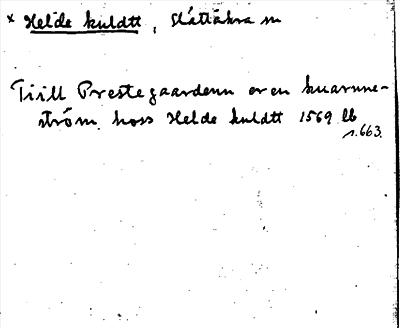 × Helde kuldtt, Slättåkra sn
Tiill Prestegaardenn er en kuarnne-
ström hoss Helde kuldtt 1569 lb
s. 663.